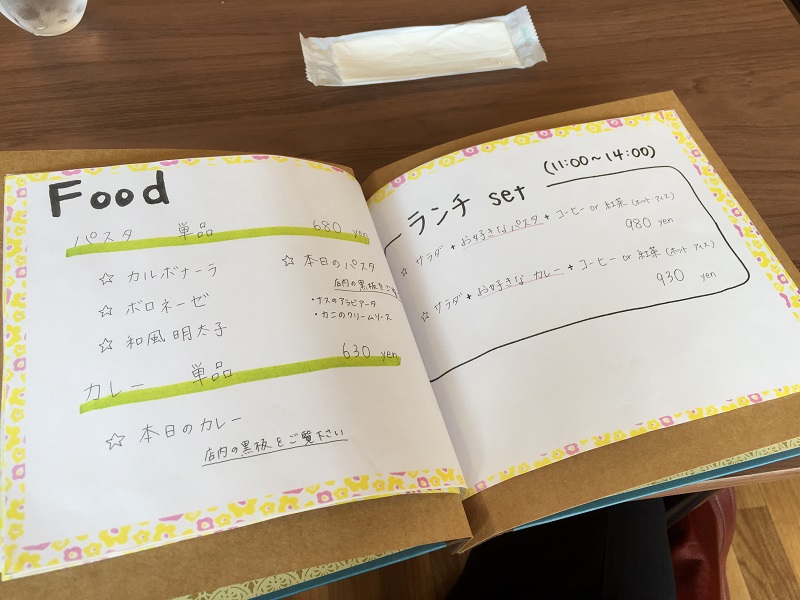 Food
パスタ 単品 680 yen
☆ カルボナーラ
☆ ボロネーゼ
☆ 和風明太子
☆ 本日のパスタ
店内の黒板をご
・ナスのアラビアータ
・カニのクリームソース
カレー 単品 630 yen
☆ 本日のカレー
店内の黒板をご覧下さい
ランチ set (11:00~14:00)
☆ サラダ + お好きなパスタ + コーヒー or 紅茶 (ホット アイス)
980 yen
☆ サラダ + お好きな カレー + コーヒー or 紅茶 (ホット アイス)
930 yen